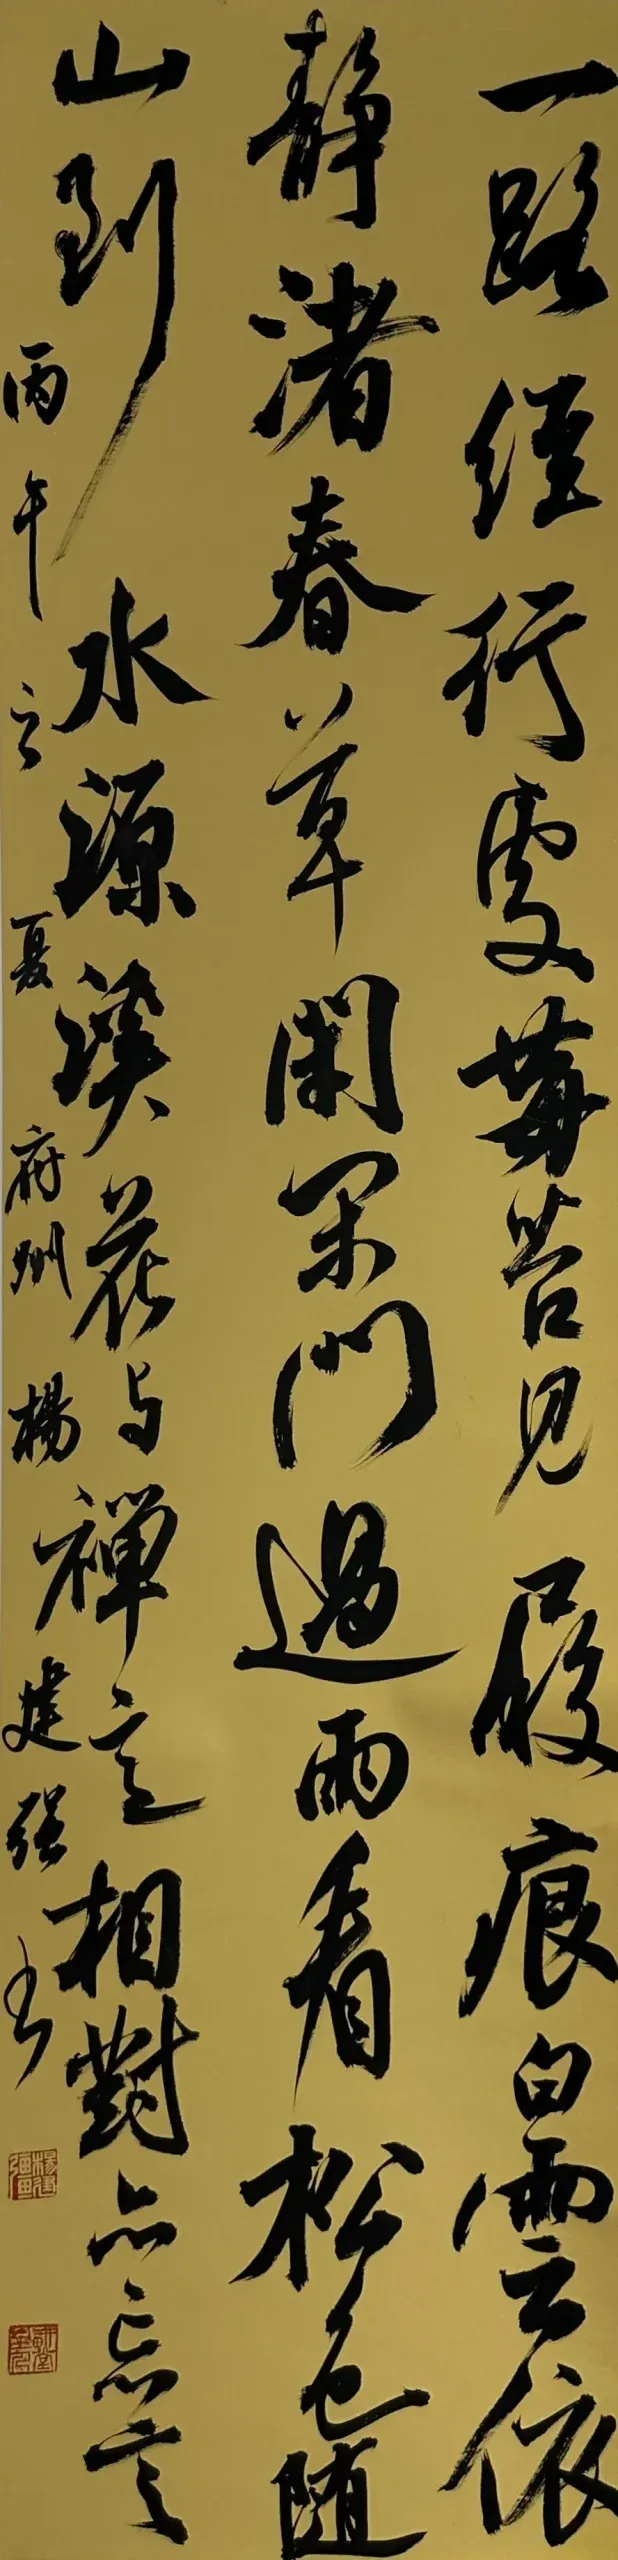 一路經行處莓苔見履痕白雲依
靜渚春草閉閑門過雨看松色随
山到水源溪花与禪意相對亦忘言
丙午之夏府州楊建強书